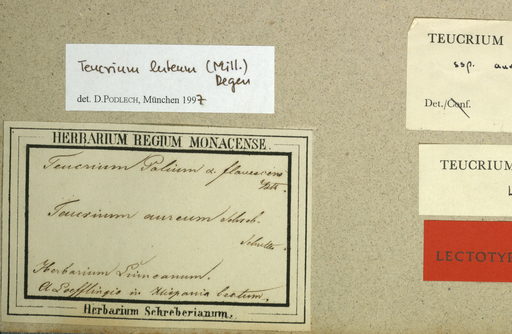 Teucrium luteum (Mill.)
Degen
det. D.PODLECH, München 1997
HERBARIUM REGIUM MONACENSE.
Teucrium Polium α. flavescens
Teucrium aureum Schreb.
Schreber.
Herbarium Linneanum.
A Loefflingio in Hispania lectum.
Herbarium Schreberianum.
TEUCRIUM
ssp. au
Det./Conf.
TEUCRIUM
LECTOTYP